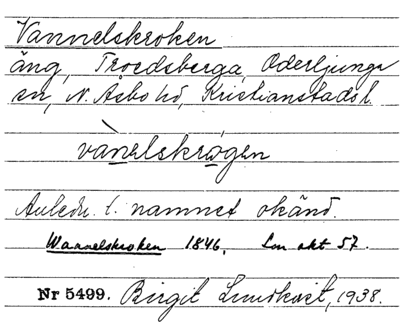 Vannelskroken
äng, Troedsberga, Oderljunga
sn, N. Åsbo hd, Kristianstads l.
vànelskrogen
Anledn. t. namnet okänd.
Wannelskroken 1846, Lm akt 57.
Nr 5499. Birgit Lundkvist, 1938.